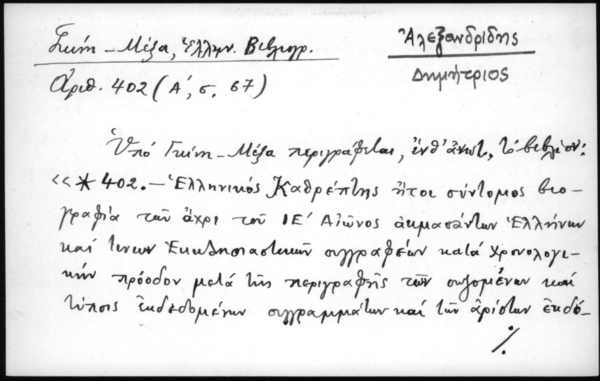 Γκίνη – Μέξα, Ἑλλην. Βιβλιογρ.
Ἀριθ. 402 (Α΄, σ. 67)
Ἀλεξανδρίδης
Δημήτριος
Ὑπό Γκίνη – Μέξα περιγράφεται, ἐνθ' ἀνωτ., τό βιβλίον:
«✶ 402. – Ἑλληνικός Καθρέπτης ἤτοι σύντομος βιο-
γραφία τῶν ἄχρι τοῦ ΙΕ΄ Αἰῶνος ἀκμασάντων Ἑλλήνων
καί τινων Ἐκκλησιαστικῶν συγγραφέων κατά χρονολογι-
κήν πρόοδον μετά τῆς περιγραφῆς τῶν σωζομένων καί
τύποις ἐκδεδομένων συγγραμμάτων καί τῶν ἀρίστων ἐκδό-
%